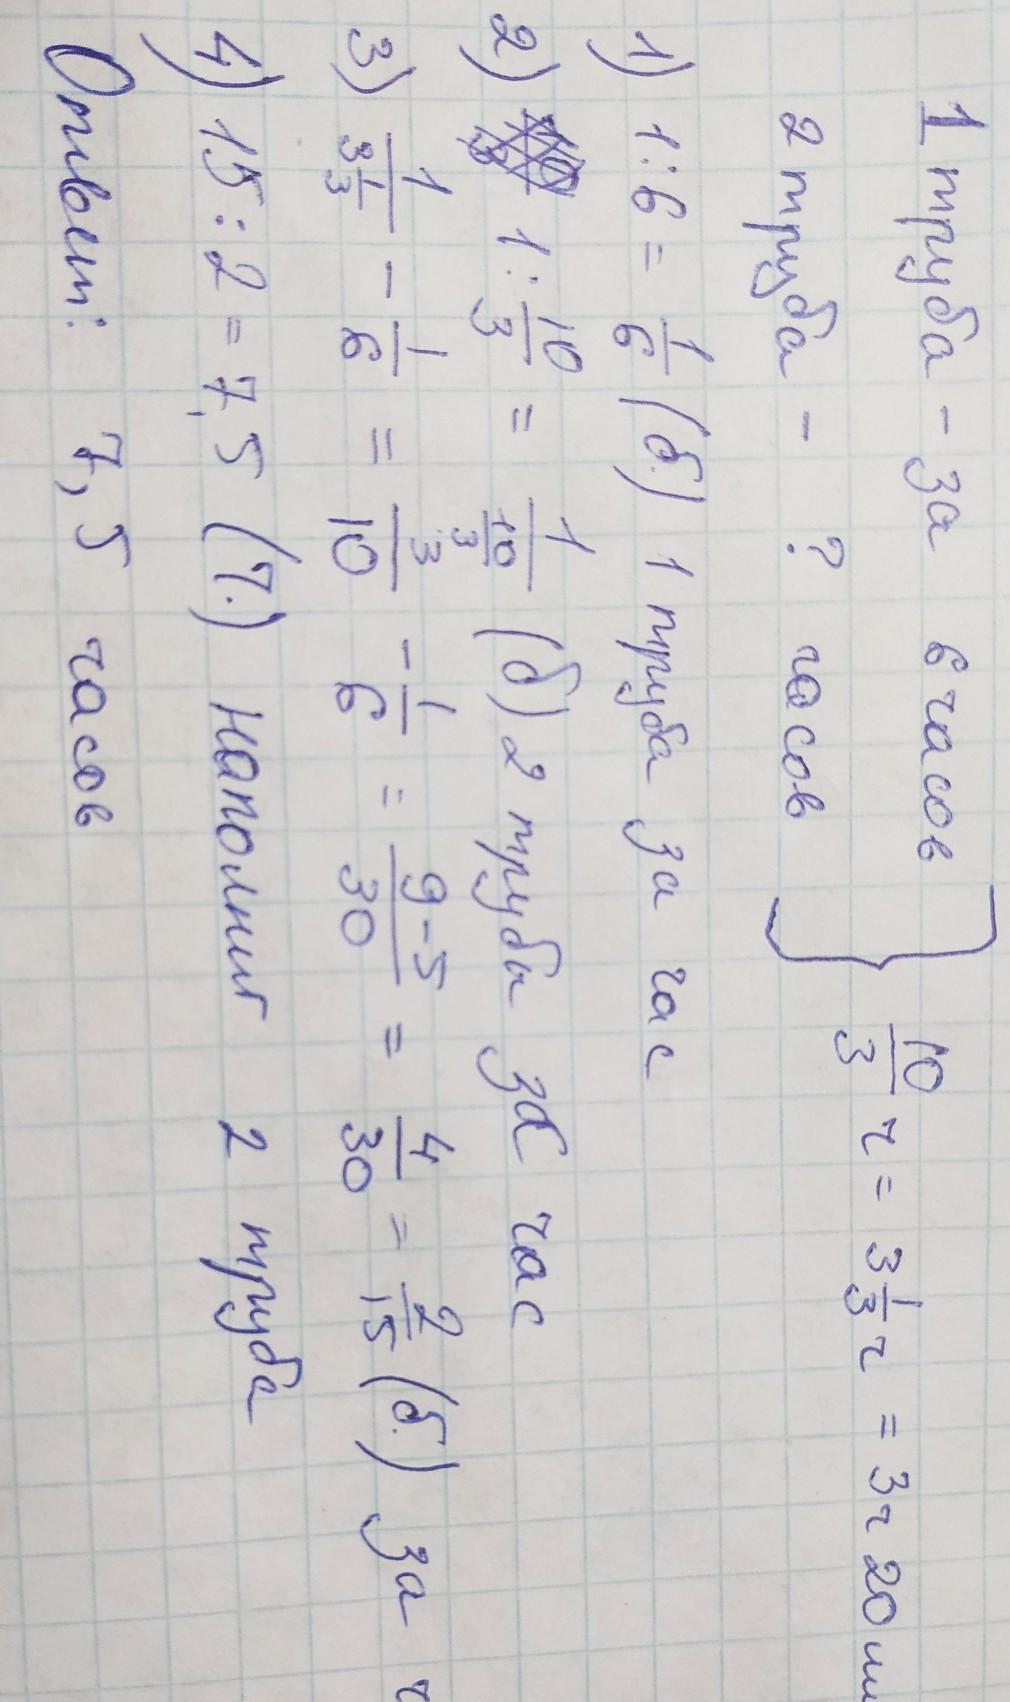 1 труба - за 6 часов } 10/3 ч = 3 1/3 ч = 3ч 20 ми
2 труба - ? часов
1) 1:6 = 1/6 (б.) 1 труба за час
2) 1: 10/3 = 1/(10/3) (б) 2 трубы за час
3) 1/(3 1/3) - 1/6 = 3/10 - 1/6 = (9-5)/30 = 4/30 = 2/15 (б.) за ч
4) 15:2 = 7,5 (ч.) наполнит 2 труба
Ответ: 7,5 часов